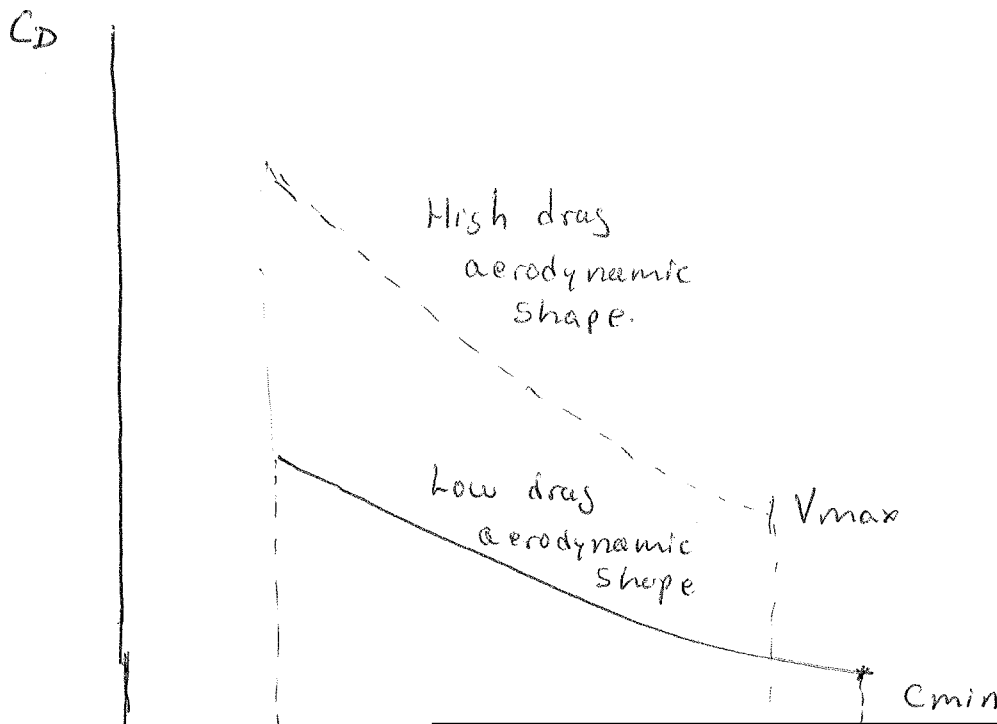 CD
High drag
aerodynamic
Shape.
Low drag
aerodynamic
Shape
Vmax
Cmin